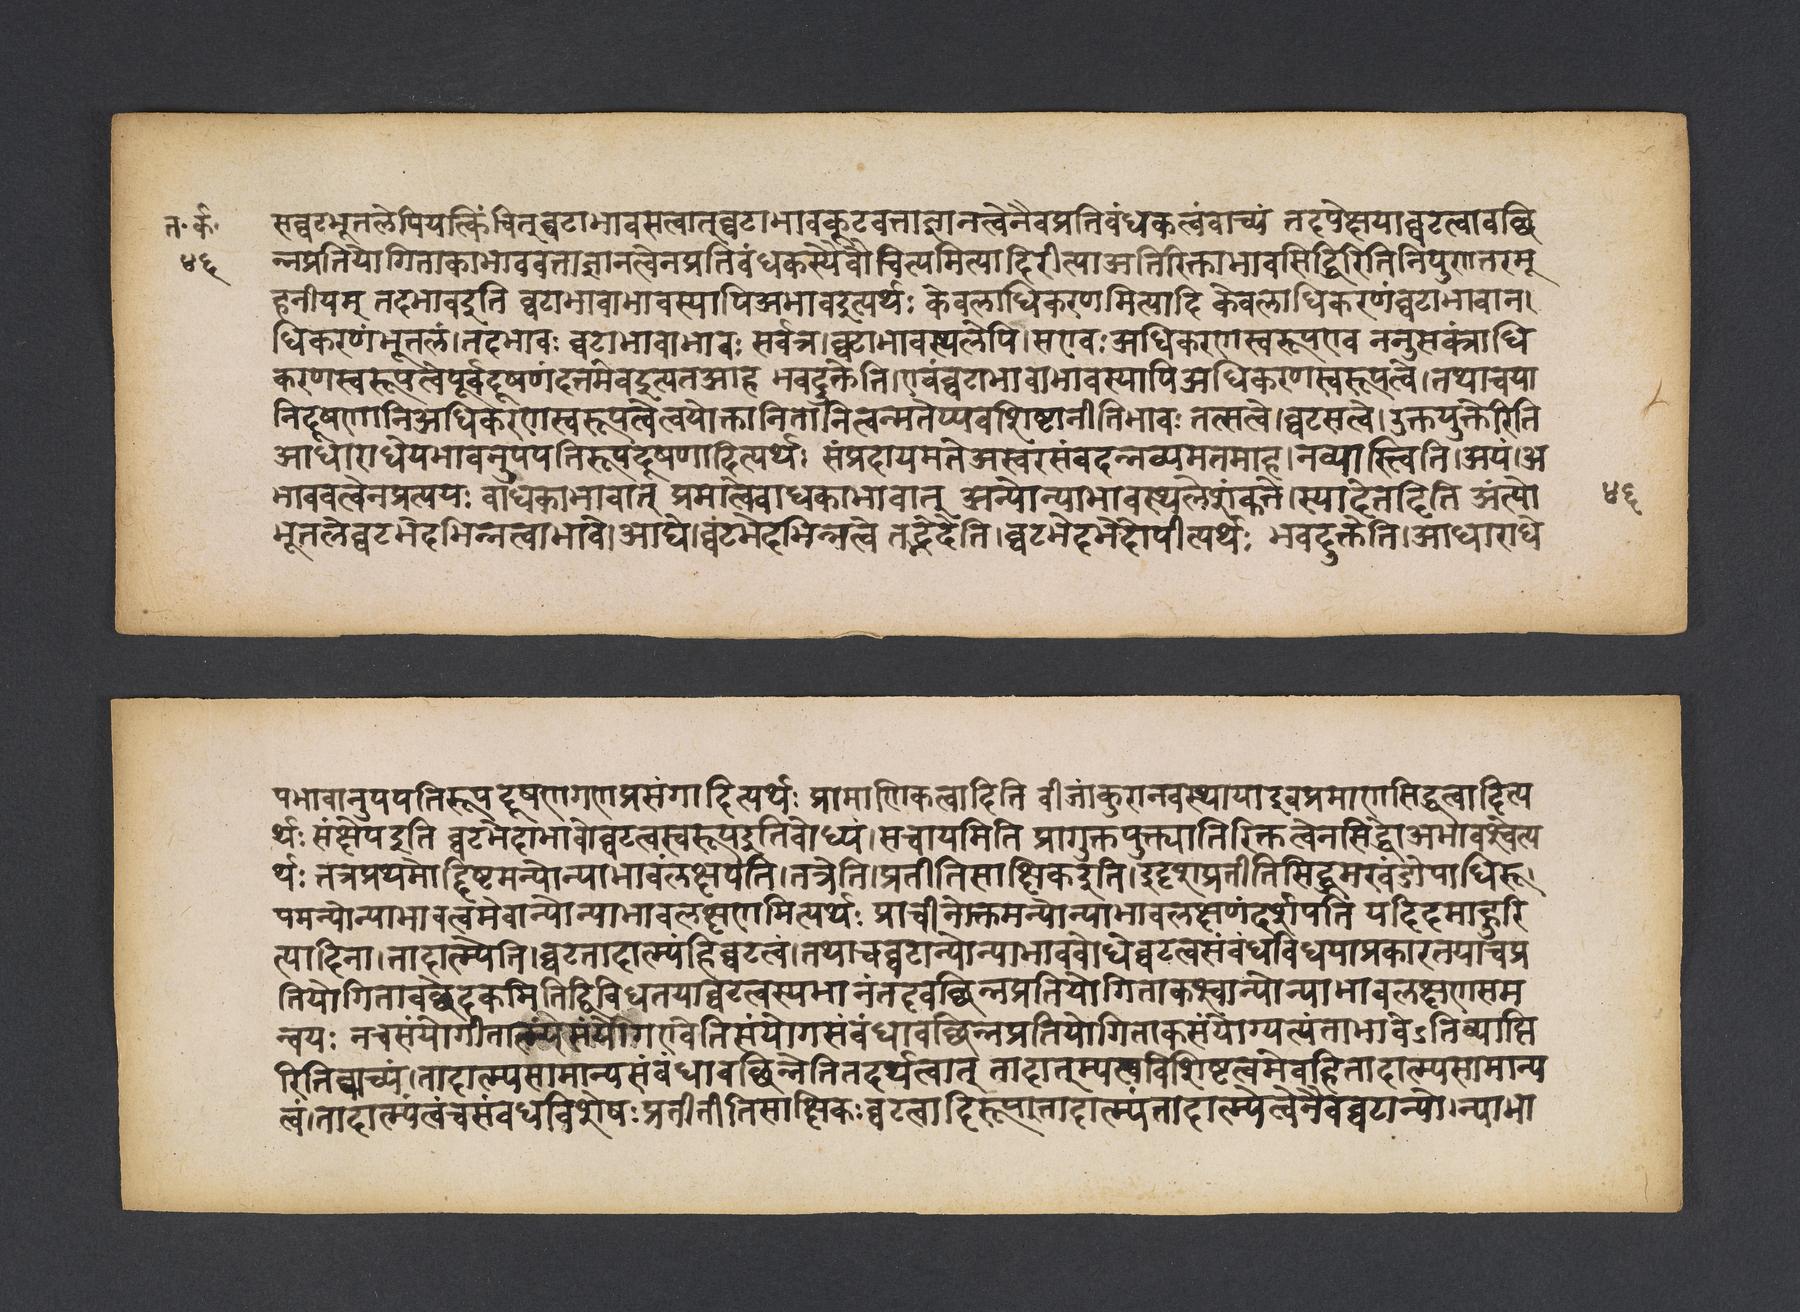 त॰ र्क॰
४६
सघटभूतलेपियत्किंचित्घटाभावसत्वात्घटाभावकूटवत्ताज्ञानत्वेनैवप्रतिबंधकत्वंवाच्यं तदपेक्षयाघटत्वावच्छि
न्नप्रतियोगिताकाभाववत्ताज्ञानत्वेनप्रतिबंधकस्यैवौचित्यमित्यादिरीत्याअतिरिक्ताभावसिद्धिरितिनिपुणतरमू
हनीयम् तदभावइति घटाभावाभावस्यापिअभावइत्यर्थः केवलाधिकरणमित्यादि केवलाधिकरणंघटाभावान।
धिकरणंभूतलं।तदभावः घटाभावाभावः सर्वत्र।घटाभावस्थलेपि।सएवः अधिकरणस्वरूपएव ननुसर्वत्राधि
करणस्वरूपत्वेपूर्वदूषणंदत्तमेवइत्यतआह भवदुक्तेति।एवंघटाभावाभावस्यापिअधिकरणस्वरूपत्वे।तथाचया
निदूषणानिअधिकरणस्वरूपत्वेत्वयोक्तानितानित्वन्मतेप्यवशिष्टानीतिभावः तत्सत्वे।घटसत्वे।उक्तयुक्तेरिति
आधाराधेयभावनुपपतिरूपदूषणादित्यर्थः संप्रदायमतेअस्वरसंवदन्नव्यमतमाह।नव्यास्त्विति।अयं।अ
भाववत्वेनप्रत्ययः बाधकाभावात् प्रमात्वेबाधकाभावात् अन्योन्याभावस्थलेशंक्तते।स्यादेतदिति अंत्यो
४६
भूतलेघटभेदभिन्नत्वाभावे।आद्ये।घटभेदभिन्नत्वे तद्भेदेति।घटभेदभेदोपीत्यर्थः भवदुक्तेति।आधाराधे
यभावानुपपतिरूपदूषणगणप्रसंगादित्यर्थः प्रामाणिकत्वादिति बीजांकुरानवस्थायाइवप्रमाणसिद्धत्वादित्य
र्थः संक्षेपइति घटभेदाभावोघटत्वस्वरूपइतिबोध्यं।सचायमिति प्रागुक्तयुक्त्यातिरिक्तत्वेनसिद्धोअभावश्चेत्य
र्थः तत्रप्रथमोद्दिष्टमन्योन्याभावंलक्षयति।तत्रेति।प्रतीतिसाक्षिकइति।इदृशप्रतीतिसिद्धमखंडोपाधिरू।
पमन्योन्याभावत्वमेवान्योन्याभावलक्षणमित्यर्थः प्राचीनोक्तमन्योन्याभावलक्षणंदर्शयति यदिदमाहुरि
त्यादिना।तादात्म्येति।घटतादात्म्यंहिघटत्वं।तथाचघटान्योन्याभावबोधेघटत्वसंबंधविधयाप्रकारतयाचप्र
तियोगितावच्छेदकमितिद्विविधतयाघटत्वस्यभानंतदवच्छिन्नप्रतियोगिताकश्चान्योन्याभावलक्षणसम
न्वयः नचसंयोगीतादात्म्यंसंयोगएवेतिसंयोगसंबंधावच्छिन्नप्रतियोगिताकसंयोग्यत्यंताभावेऽतिव्याप्ति
रितिवाच्यं।तादात्म्यसामान्यसंबंधावच्छिन्नेतितदर्थत्वात् तादात्म्यत्वविशिष्टत्वमेवहितादात्म्यसामान्य
त्वं।तादात्म्यत्वंचसंबधविशेषः प्रतीतीतिसाक्षिकः घटत्वादिरूपातादात्म्यंतादात्म्यत्वेनैवघटान्यो।न्याभा